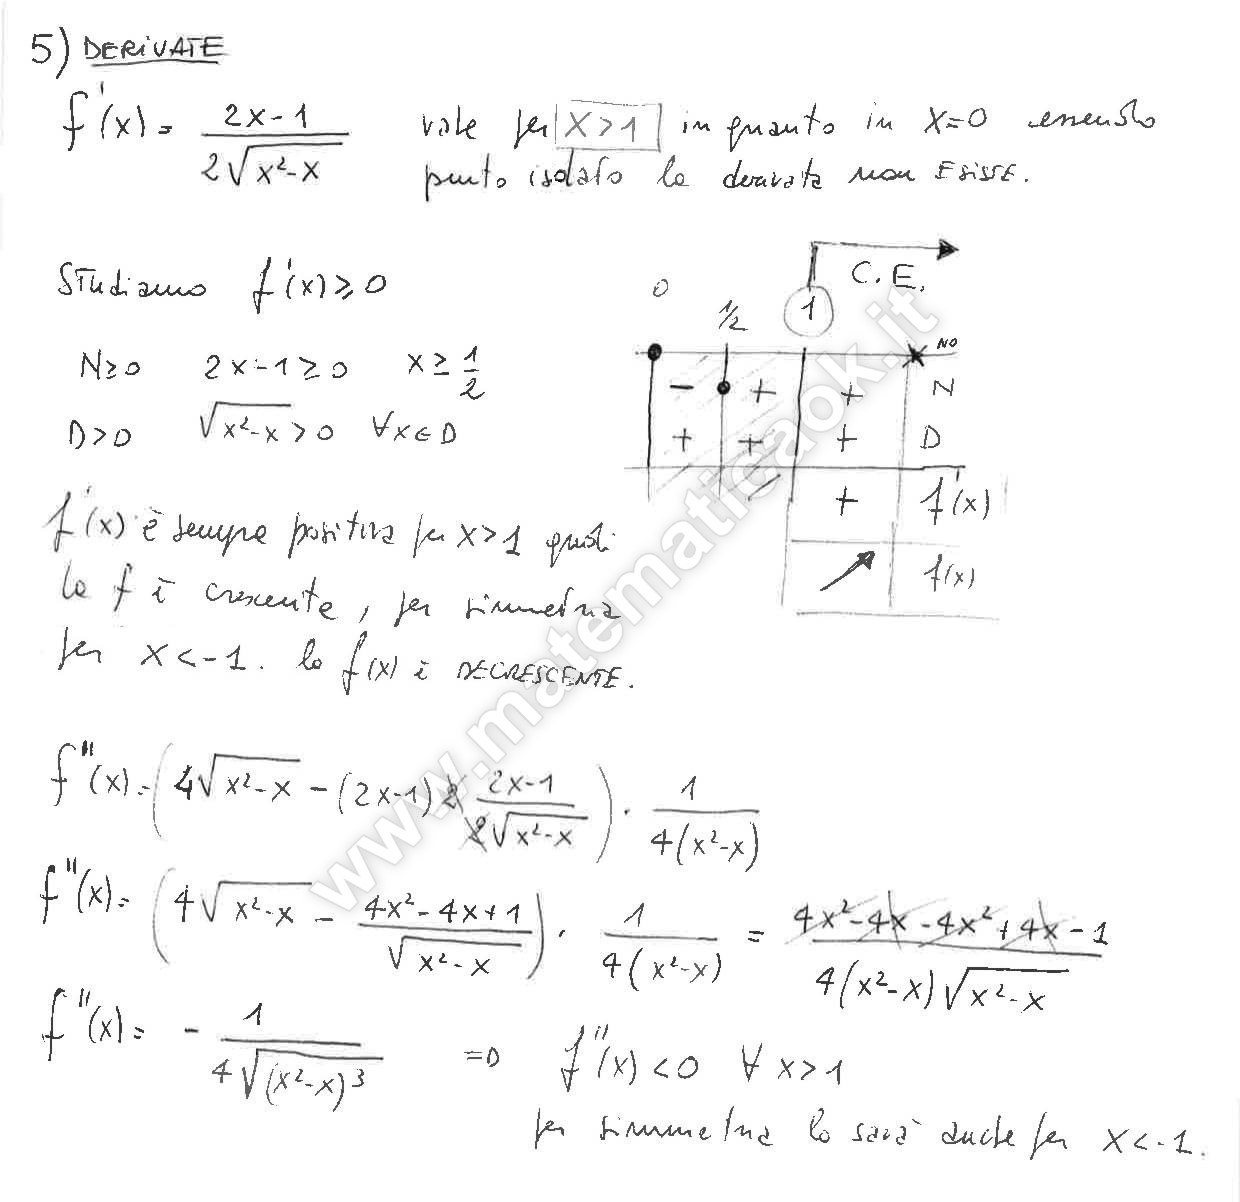 5) DERIVATE
f'(x) = (2x-1)/(2√(x²-x)) vale per x>1 in quanto in x=0 essendo
punto isolato la derivata non ESISTE.
Studiamo f'(x) ≥ 0
N≥0 2x-1≥0 x ≥ 1/2
D>0 √(x²-x) > 0 ∀x∈D
0 1/2 1 C.E.
NO
- + + N
+ + + D
+ f'(x)
↗ f(x)
f'(x) è sempre positiva per x>1 quindi
la f è crescente, per simmetria
per x<-1. la f(x) è DECRESCENTE.
f''(x) = (4√(x²-x) - (2x-1) 2 (2x-1)/(2√(x²-x))) · 1/(4(x²-x))
f''(x) = (4√(x²-x) - (4x²-4x+1)/√(x²-x)) · 1/(4(x²-x)) = (4x²-4x-4x²+4x-1)/(4(x²-x)√(x²-x))
f''(x) = - 1/(4√(x²-x)³) => f''(x)<0 ∀ x>1
per simmetria lo sarà anche per x<-1.
www.matematicaok.it